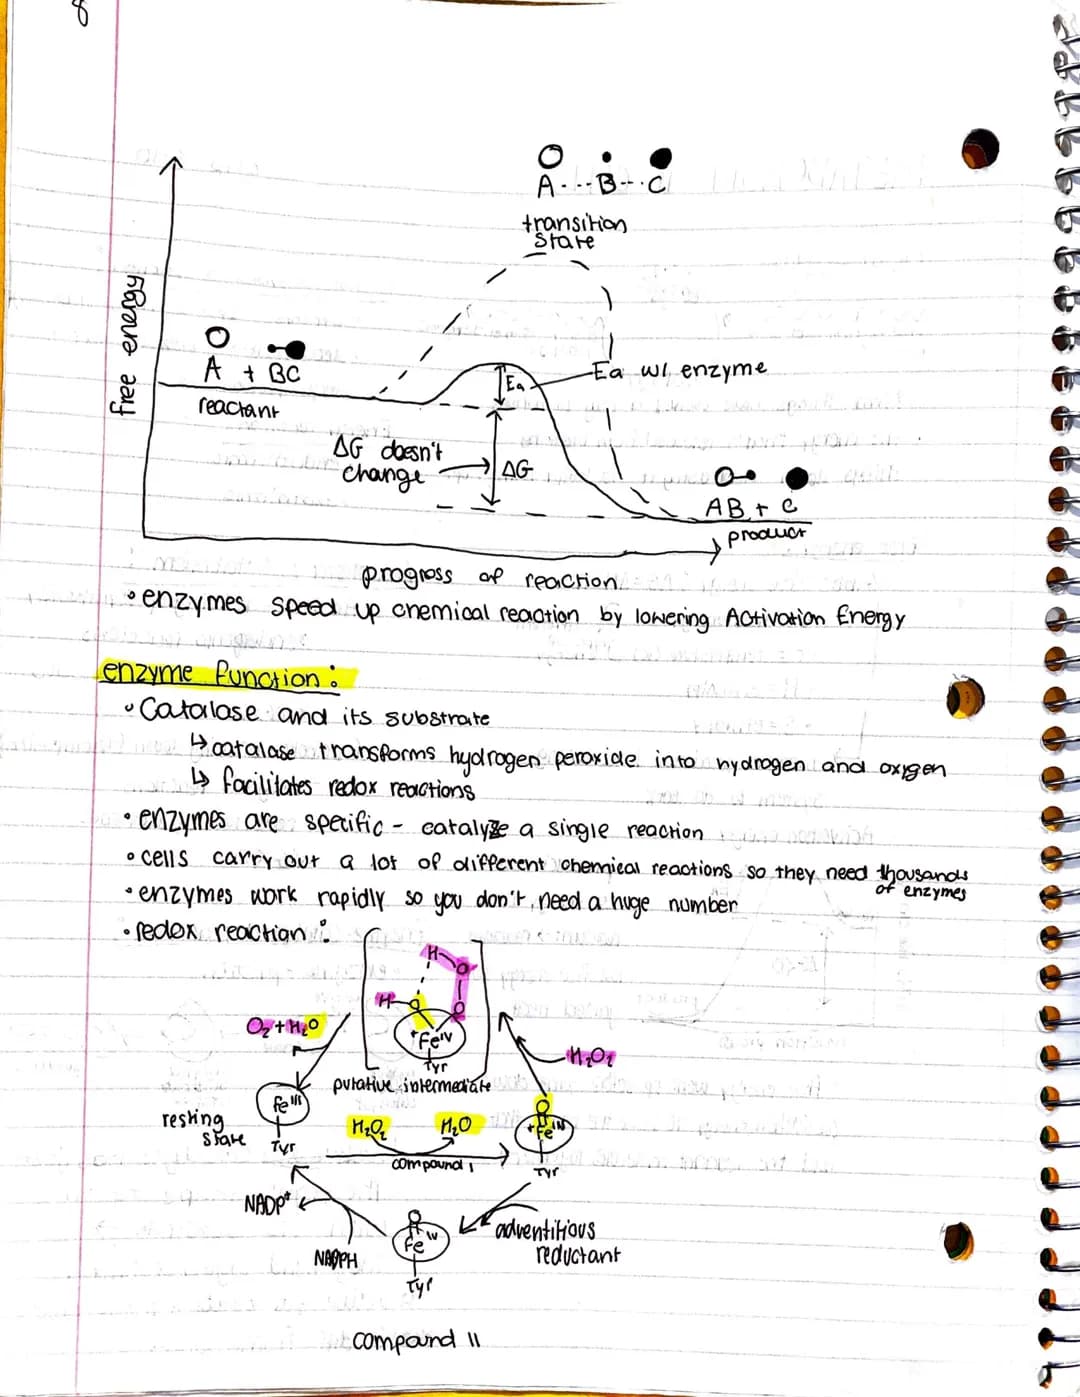 8
A---B--·C
transition
state
free energy
A + BC
reactant
Ea
Ea w/ enzyme
ΔG doesn't
change
ΔG
AB + C
product
progress of reaction
• enzymes speed up chemical reaction by lowering Activation Energy
enzyme function:
• Catalase and its substrate
↳ catalase transforms hydrogen peroxide into hydrogen and oxygen
↳ facilitates redox reactions
• enzymes are specific - catalyze a single reaction
• cells carry out a lot of different chemical reactions so they need thousands
of enzymes
• enzymes work rapidly so you don't need a huge number
• redox reaction:
H O
H O O
+Fe IV
Tyr
putative intermediate
O₂ + H₂O
H₂O₂
Fe III
Tyr
resting
state
H₂O₂ H₂O
compound I
O
+Fe IV
Tyr
NADP+
NADPH
O
Fe IV
Tyr
adventitious
reductant
compound II